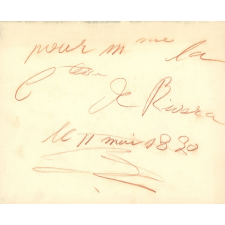 pour Mme la
Ctesse
De Rivera
le 11 mai 1830